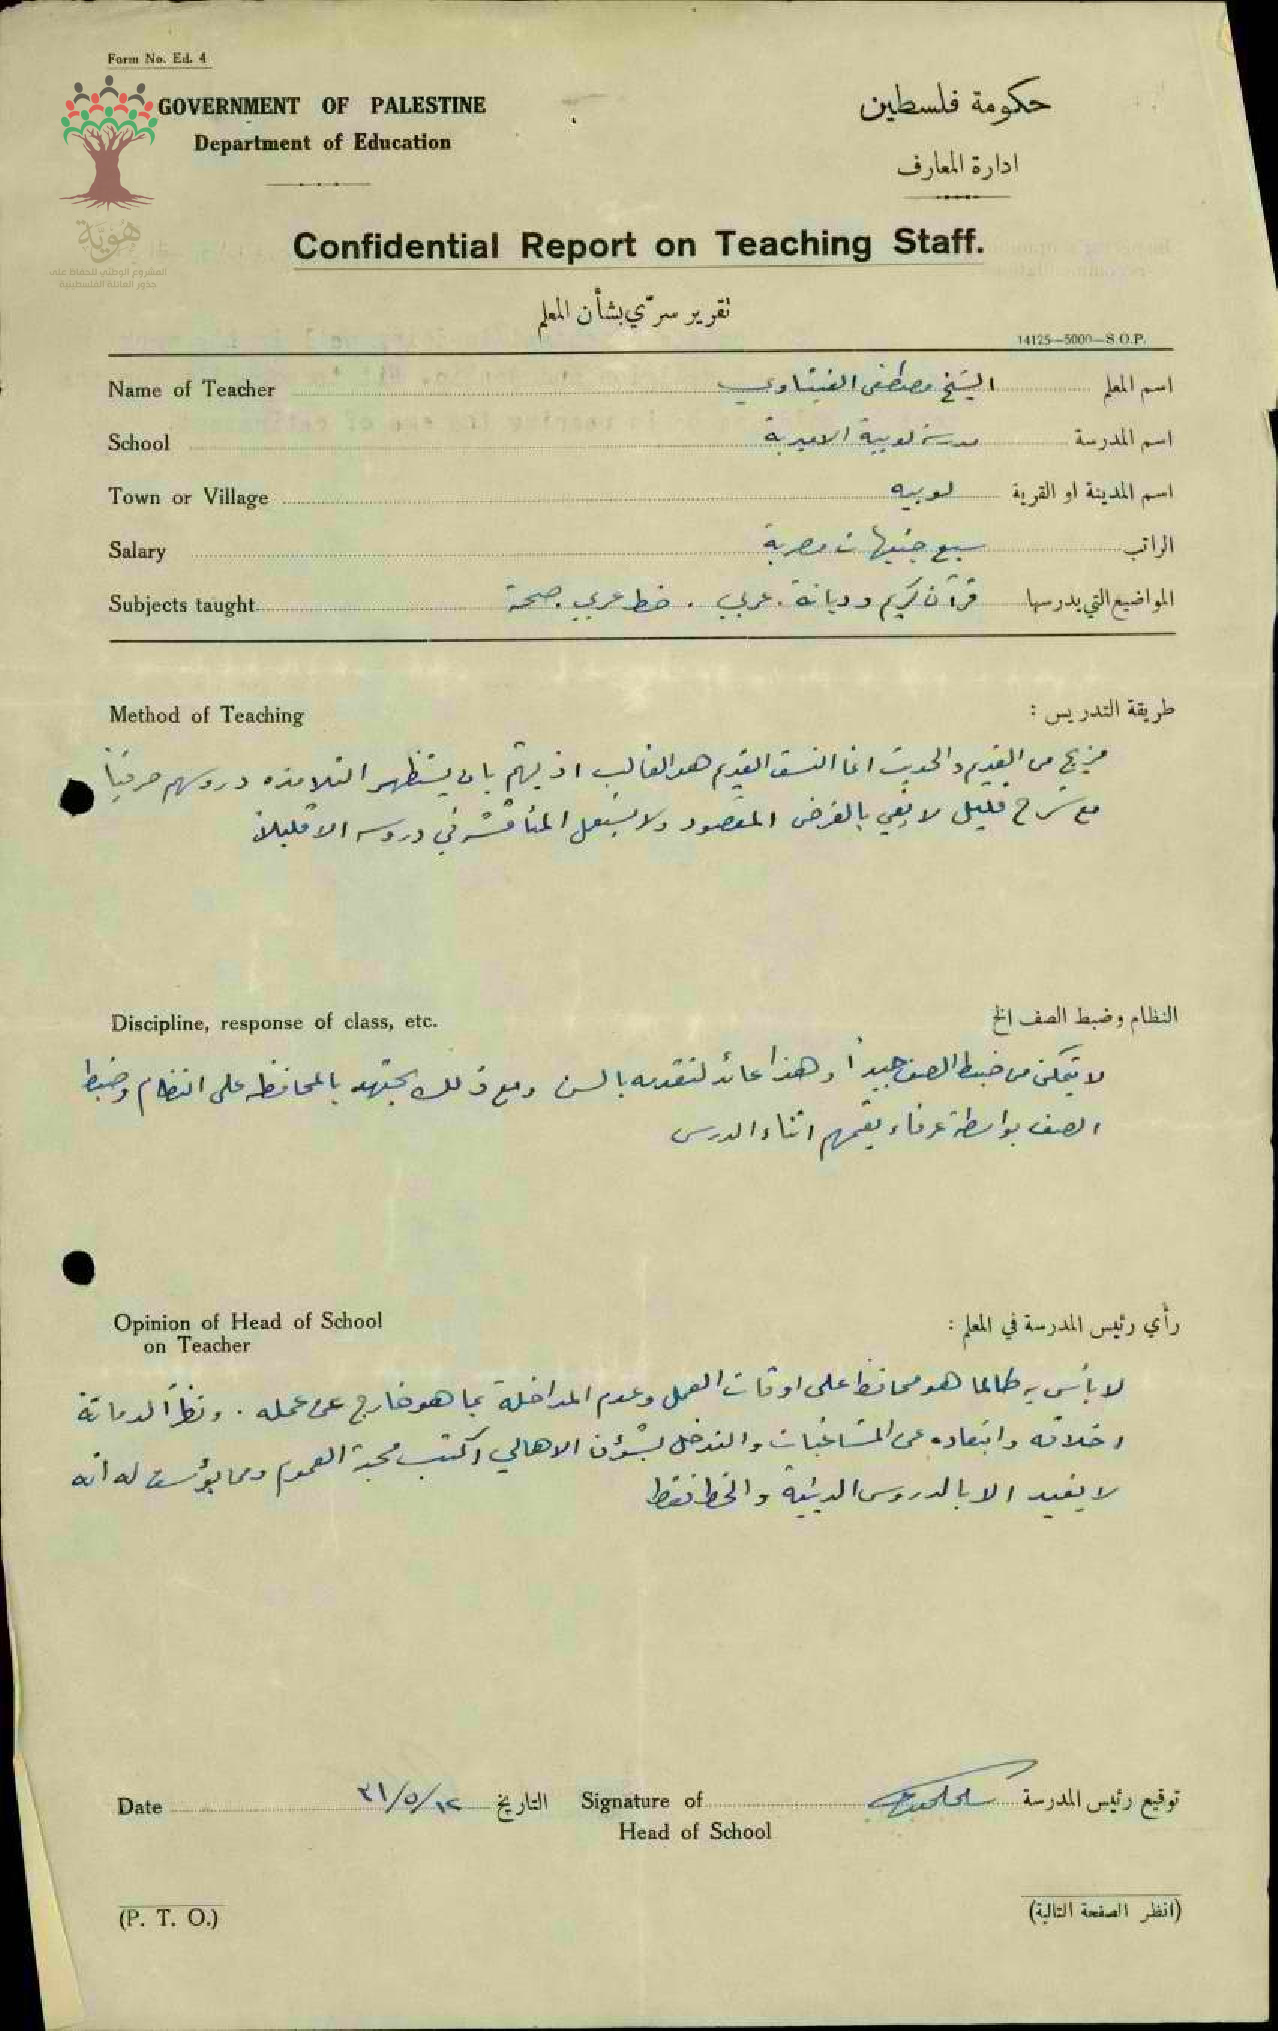 Form No. Ed. 4
GOVERNMENT OF PALESTINE
حكومة فلسطين
Department of Education
ادارة المعارف
هوية
المشروع الوطني للحفاظ على
جذور العائلة الفلسطينية
Confidential Report on Teaching Staff.
تقرير سرّي بشأن المعلم
14125—5000—S.O.P.
Name of Teacher الشيخ مصطفى اسم المعلم
School مدرسة لوبية الاميرية اسم المدرسة
Town or Village لوبيه اسم المدينة او القرية
Salary سبع جنيهات مصرية الراتب
Subjects taught قرآن كريم وديانة . عربي . خط عربي . صحة المواضيع التي يدرسها
Method of Teaching طريقة التدريس :
مزيج من القديم والحديث انما النسق القديم هو الغالب اذ يهتم بان يستظهر التلامذه دروسهم حرفياً
مع شرح قليل لا يفي بالغرض المقصود ولا يستعمل المناقشه في دروسه الا قليلاً
Discipline, response of class, etc. النظام وضبط الصف الخ
لا يتمكن من ضبط الصف جيداً وهذا عائد لتقدمه بالسن ومع ذلك يجتهد بالمحافظه على النظام وضبط
الصف بواسطة عرفاء يقيمهم اثناء الدرس
Opinion of Head of School
on Teacher
رأي رئيس المدرسة في المعلم :
لا بأس به طالما هو محافظ على اوقات العمل وعدم المداخلة بما هو خارج عن عمله . ونظراً لدماثة
اخلاقه وابتعاده عن المشاغبات والتدخل بشؤون الاهالي اكتسب محبة العموم ومما يؤسف له انه
لا يفيد الا بالدروس الدينية والخط فقط
Date ٣١/٥/١٢ التاريخ Signature of توقيع رئيس المدرسة
Head of School
(P. T. O.)
(انظر الصفحة التالية)